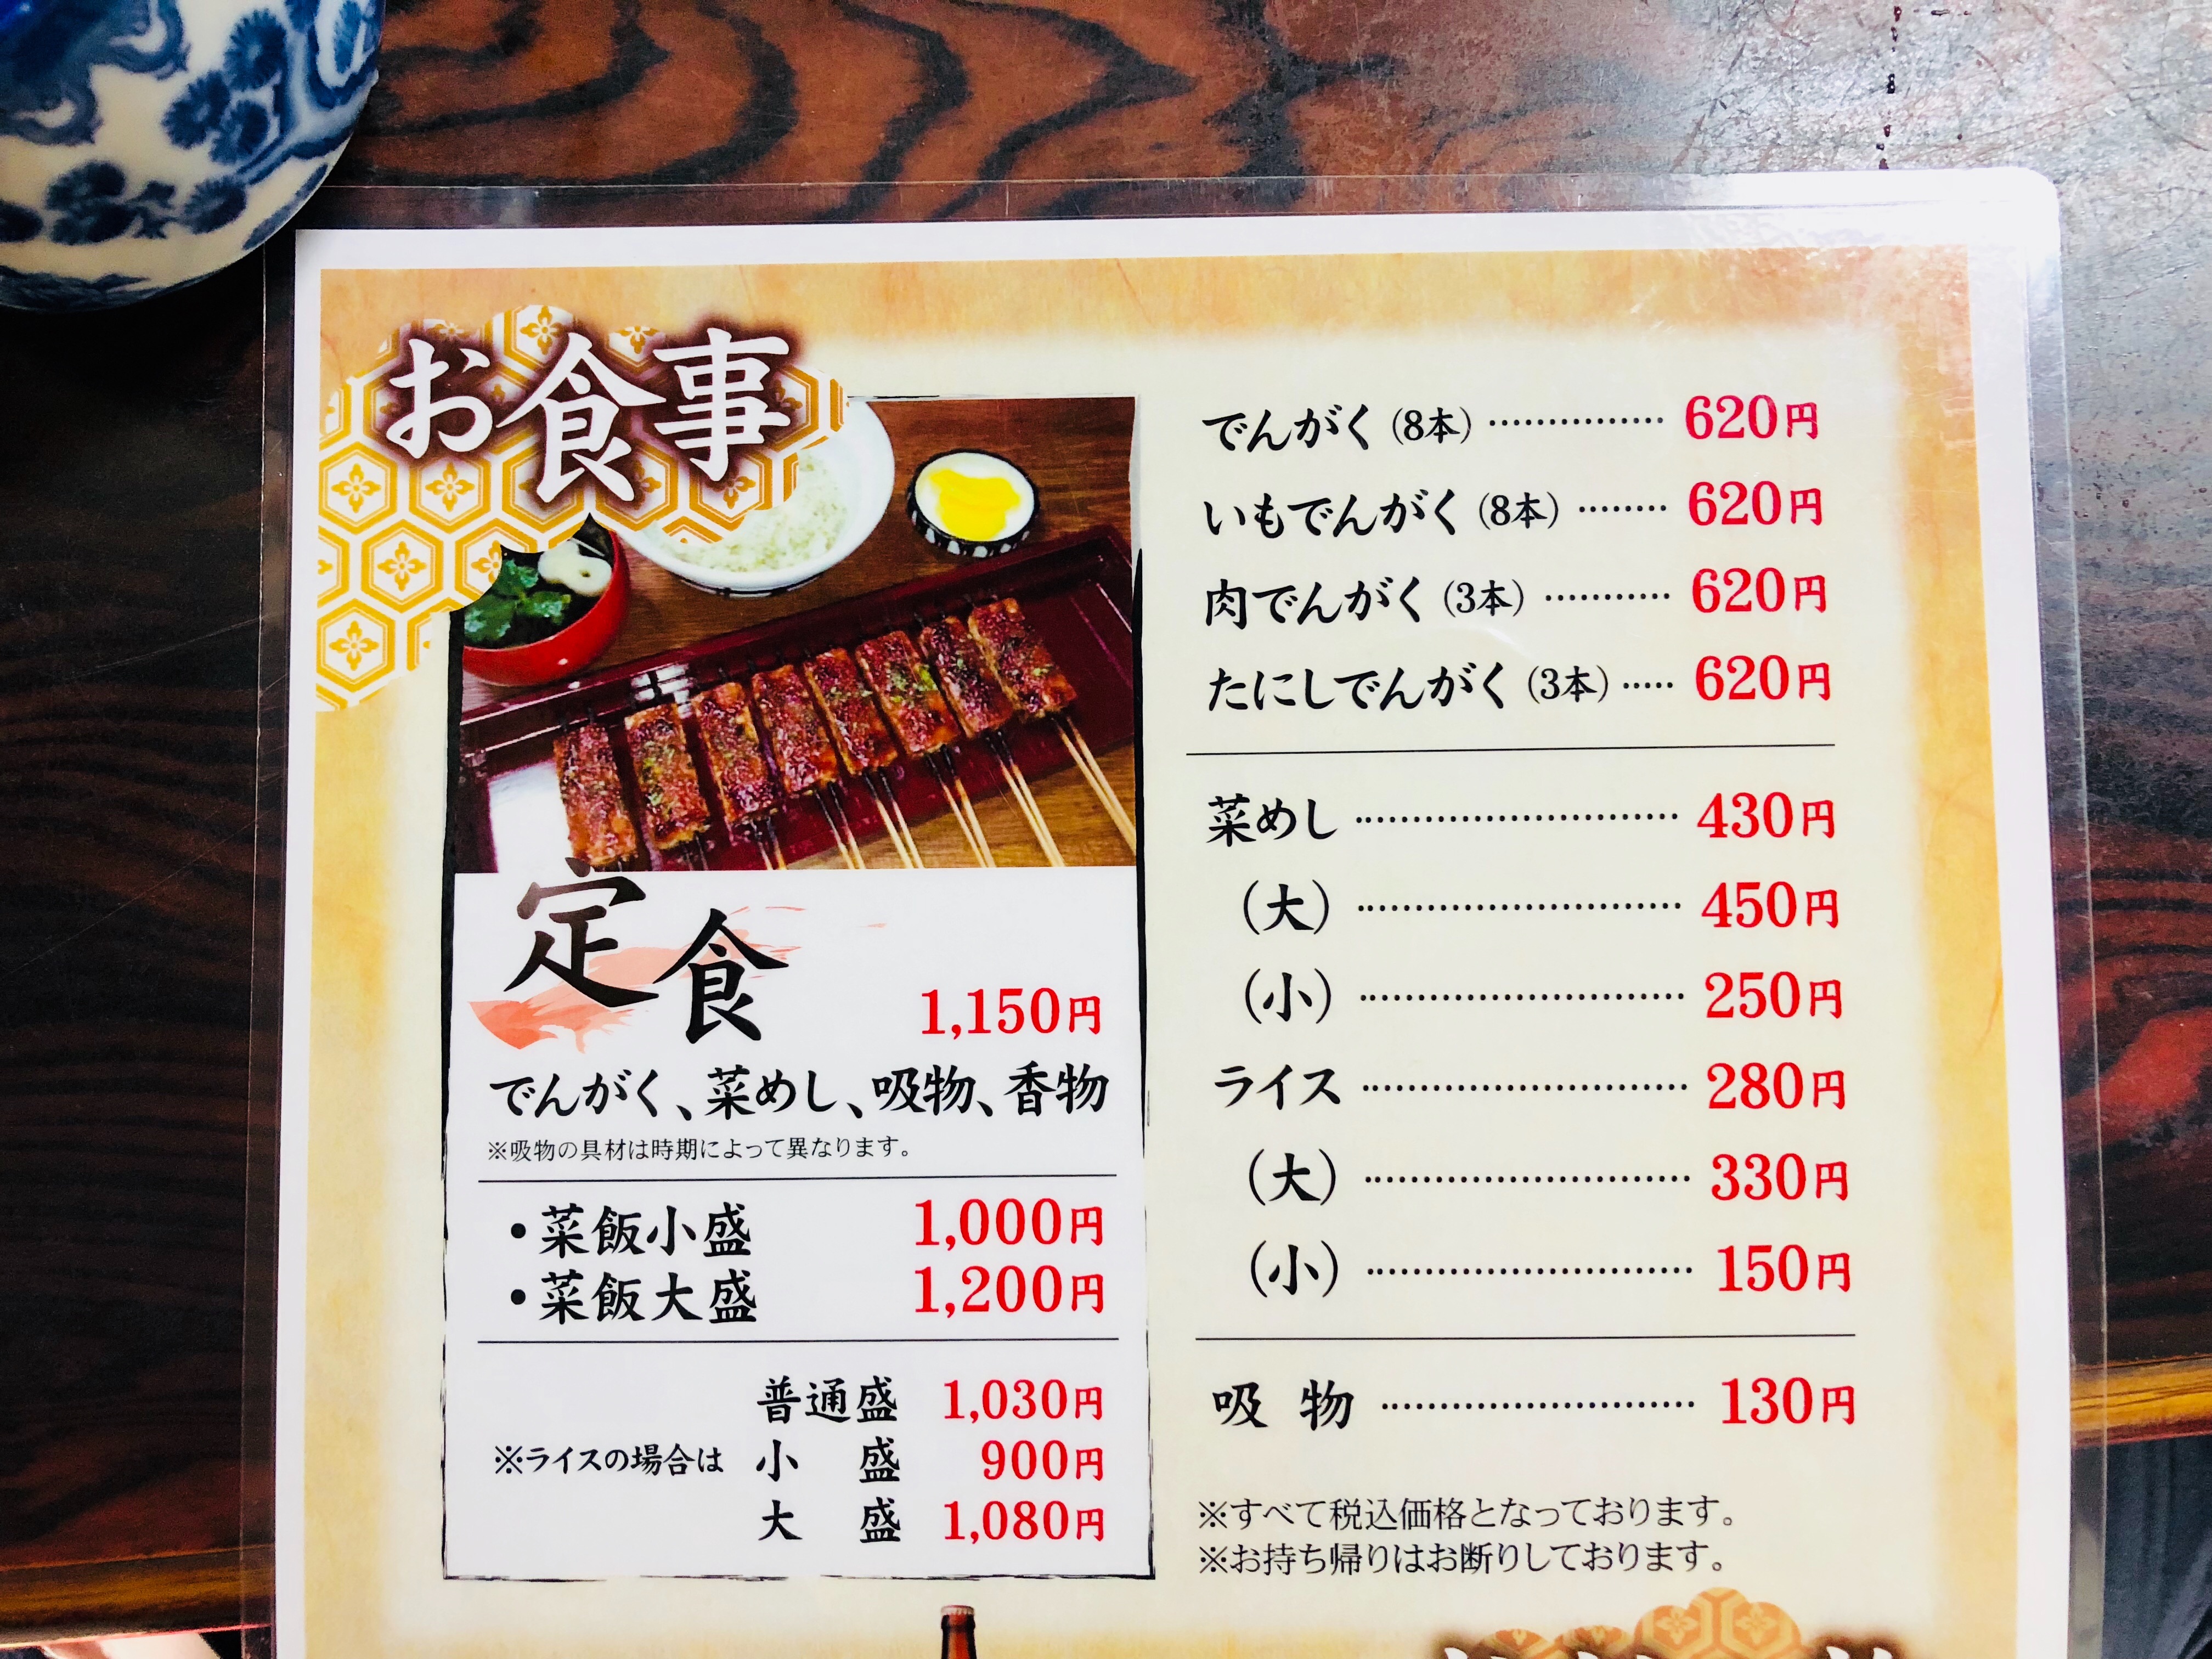 お食事
定食 1,150円
でんがく、菜めし、吸物、香物
※吸物の具材は時期によって異なります。
・菜飯小盛 1,000円
・菜飯大盛 1,200円
普通盛 1,030円
※ライスの場合は 小盛 900円
大盛 1,080円
でんがく(8本) 620円
いもでんがく(8本) 620円
肉でんがく(3本) 620円
たにしでんがく(3本) 620円
菜めし 430円
(大) 450円
(小) 250円
ライス 280円
(大) 330円
(小) 150円
吸物 130円
※すべて税込価格となっております。
※お持ち帰りはお断りしております。